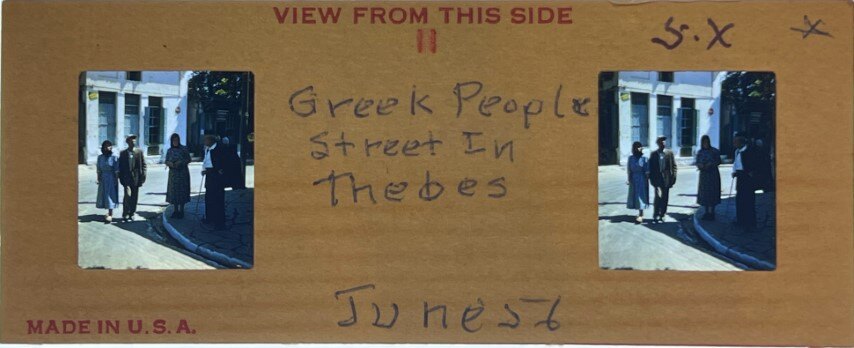 VIEW FROM THIS SIDE
5.X X
Greek People
Street In
Thebes
June 56
MADE IN U.S.A.